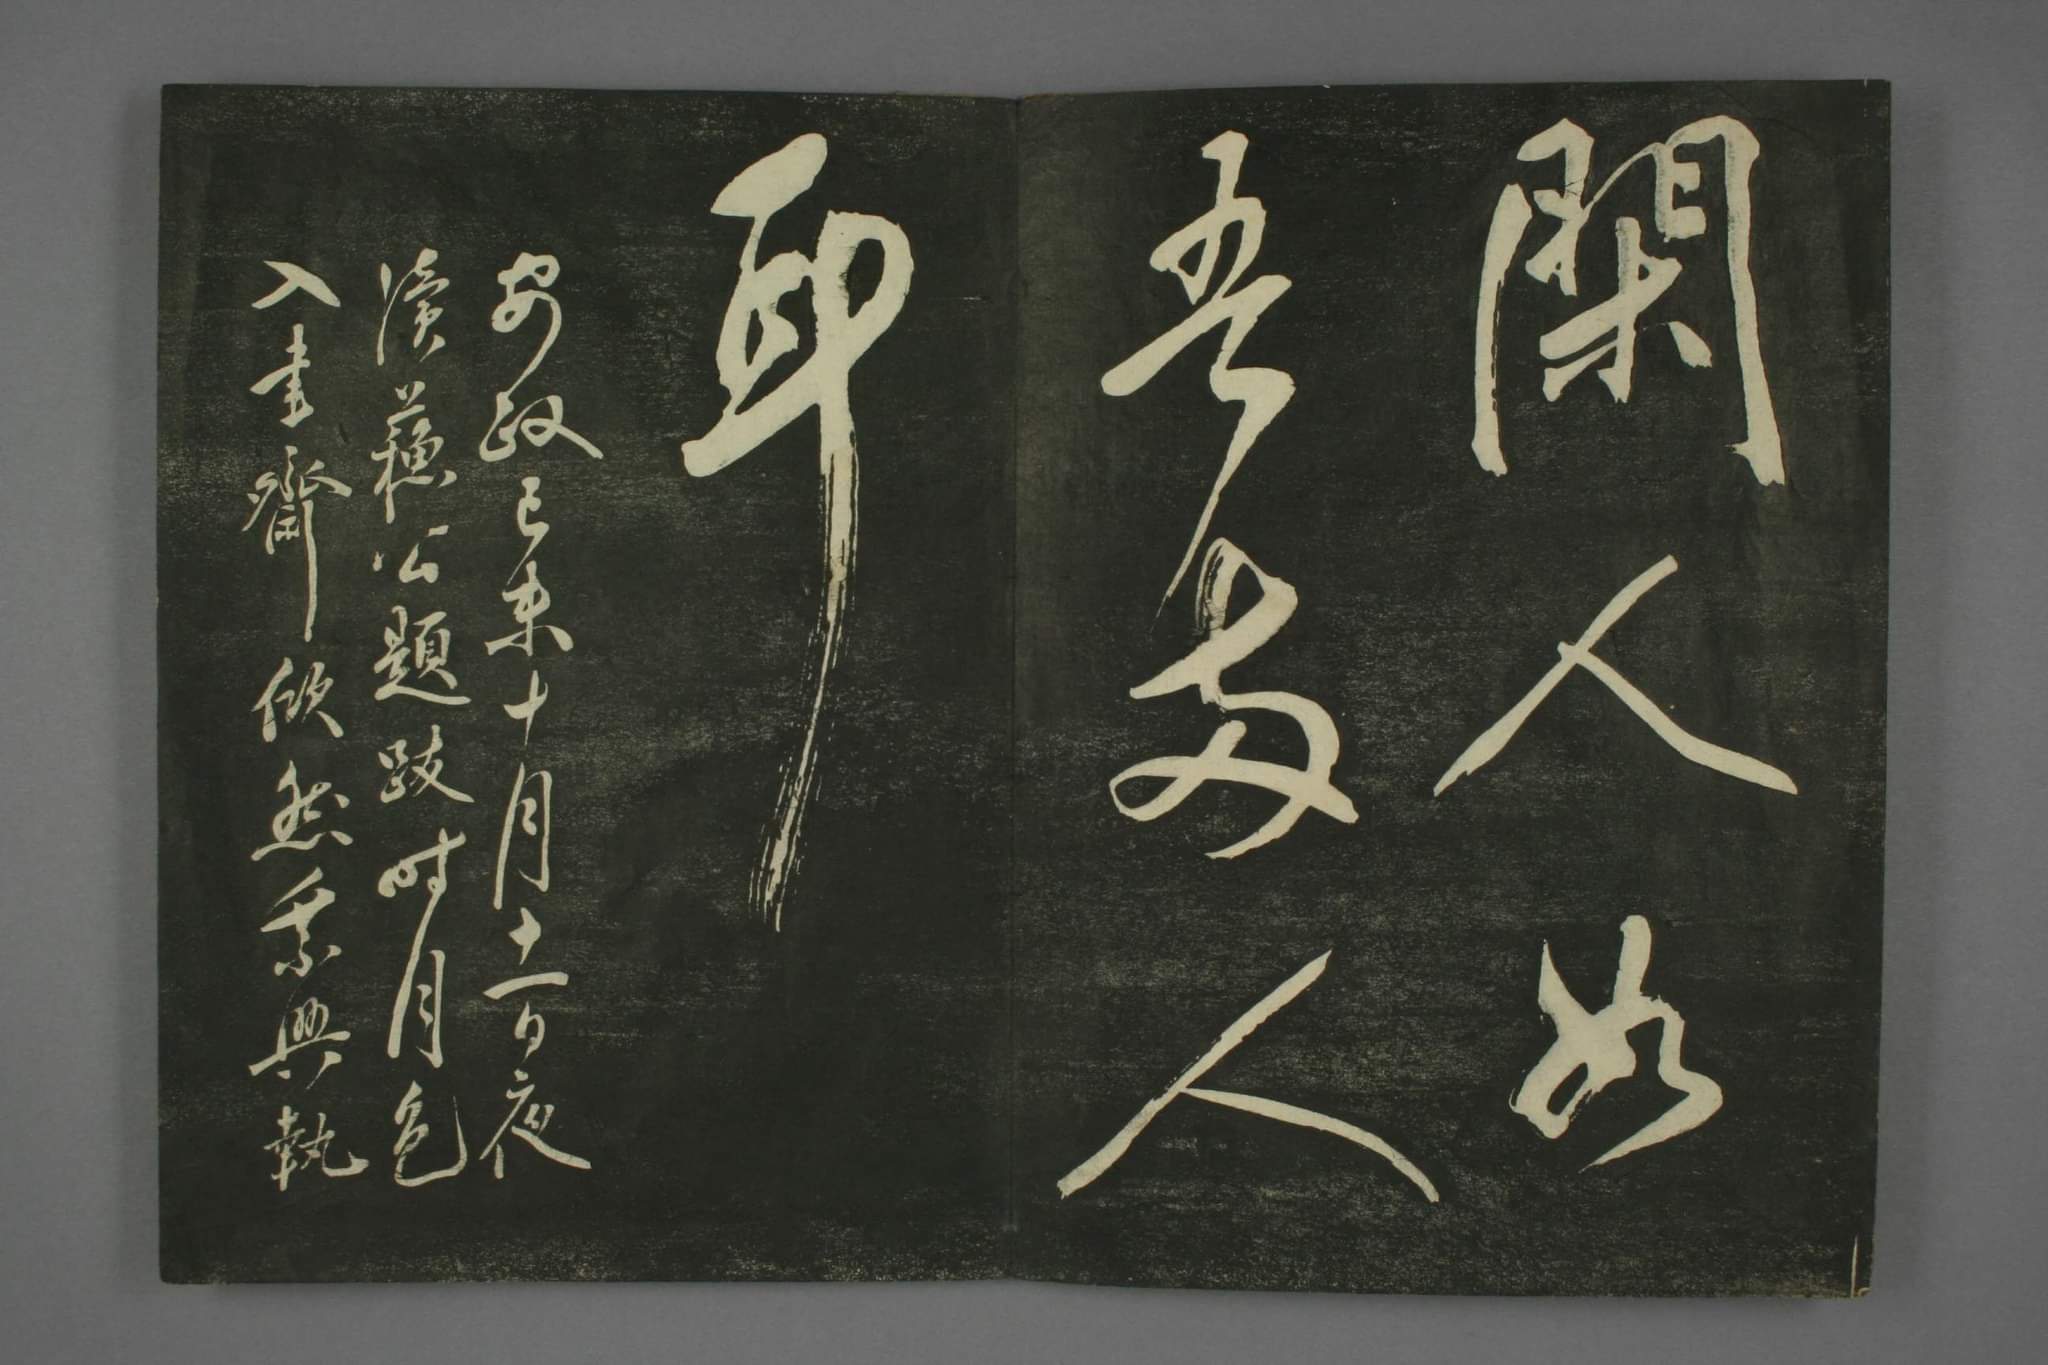 閑人如
吾兩人
耳
安政己未十月十一日夜
讀蘓公題跋時月色
入書齋欣然乘興執